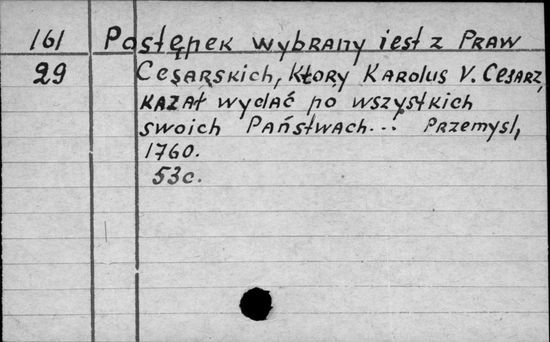 161 Postępek wybrany iest z Praw
29 Cesarskich, ktory Karolus V. Cesarz,
kazał wydać po wszystkich
swoich Państwach... Przemysl,
1760.
53c.